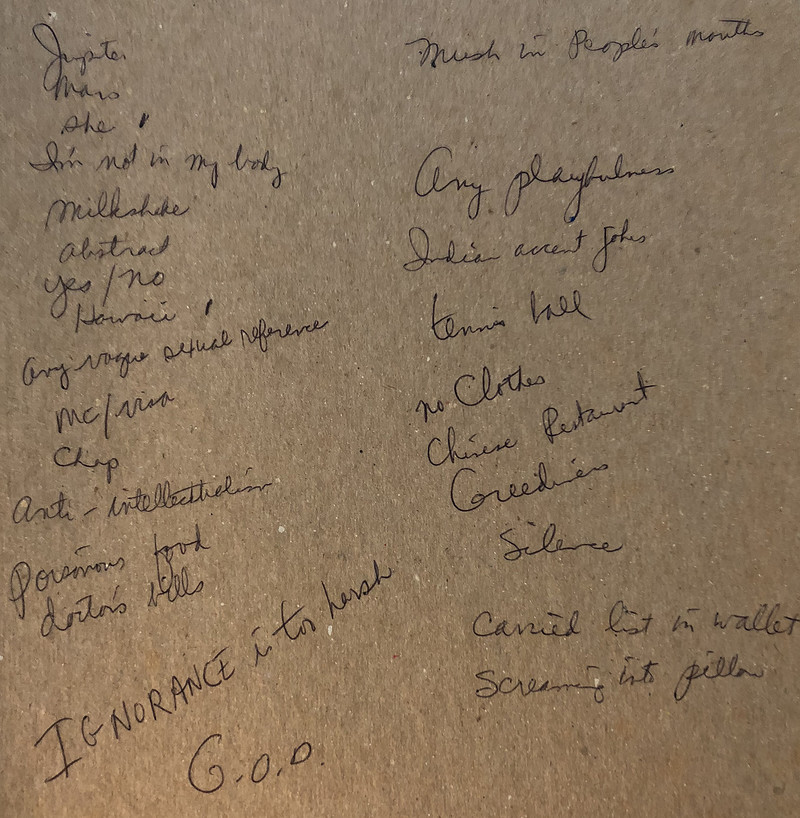 Jupiter
Mars
she '
I'm not in my body
Milkshake
abstract
yes/no
Hawaii '
any vague sexual reference
MC/visa
Chap
Anti-intellectualism
Poisonous food
doctor's bills
IGNORANCE is too harsh
G.O.D.
Mush in People's mouths
Any playfulness
Indian accent jokes
tennis ball
no Clothes
Chinese Restaurant
Greediness
Silence
Carried list in wallet
Screaming into pillow